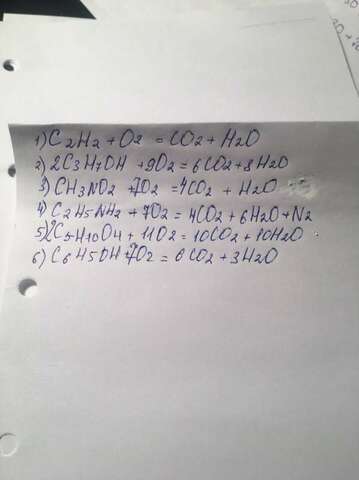 1) C2H2 + O2 = CO2 + H2O
2) 2C3H7OH + 9O2 = 6CO2 + 8H2O
3) CH3NO2 + 7O2 = 4CO2 + H2O
4) C2H5NH2 + 7O2 = 4CO2 + 6H2O + N2
5) 2C5H10O4 + 11O2 = 10CO2 + 10H2O
6) C6H5OH + 7O2 = 6CO2 + 3H2O